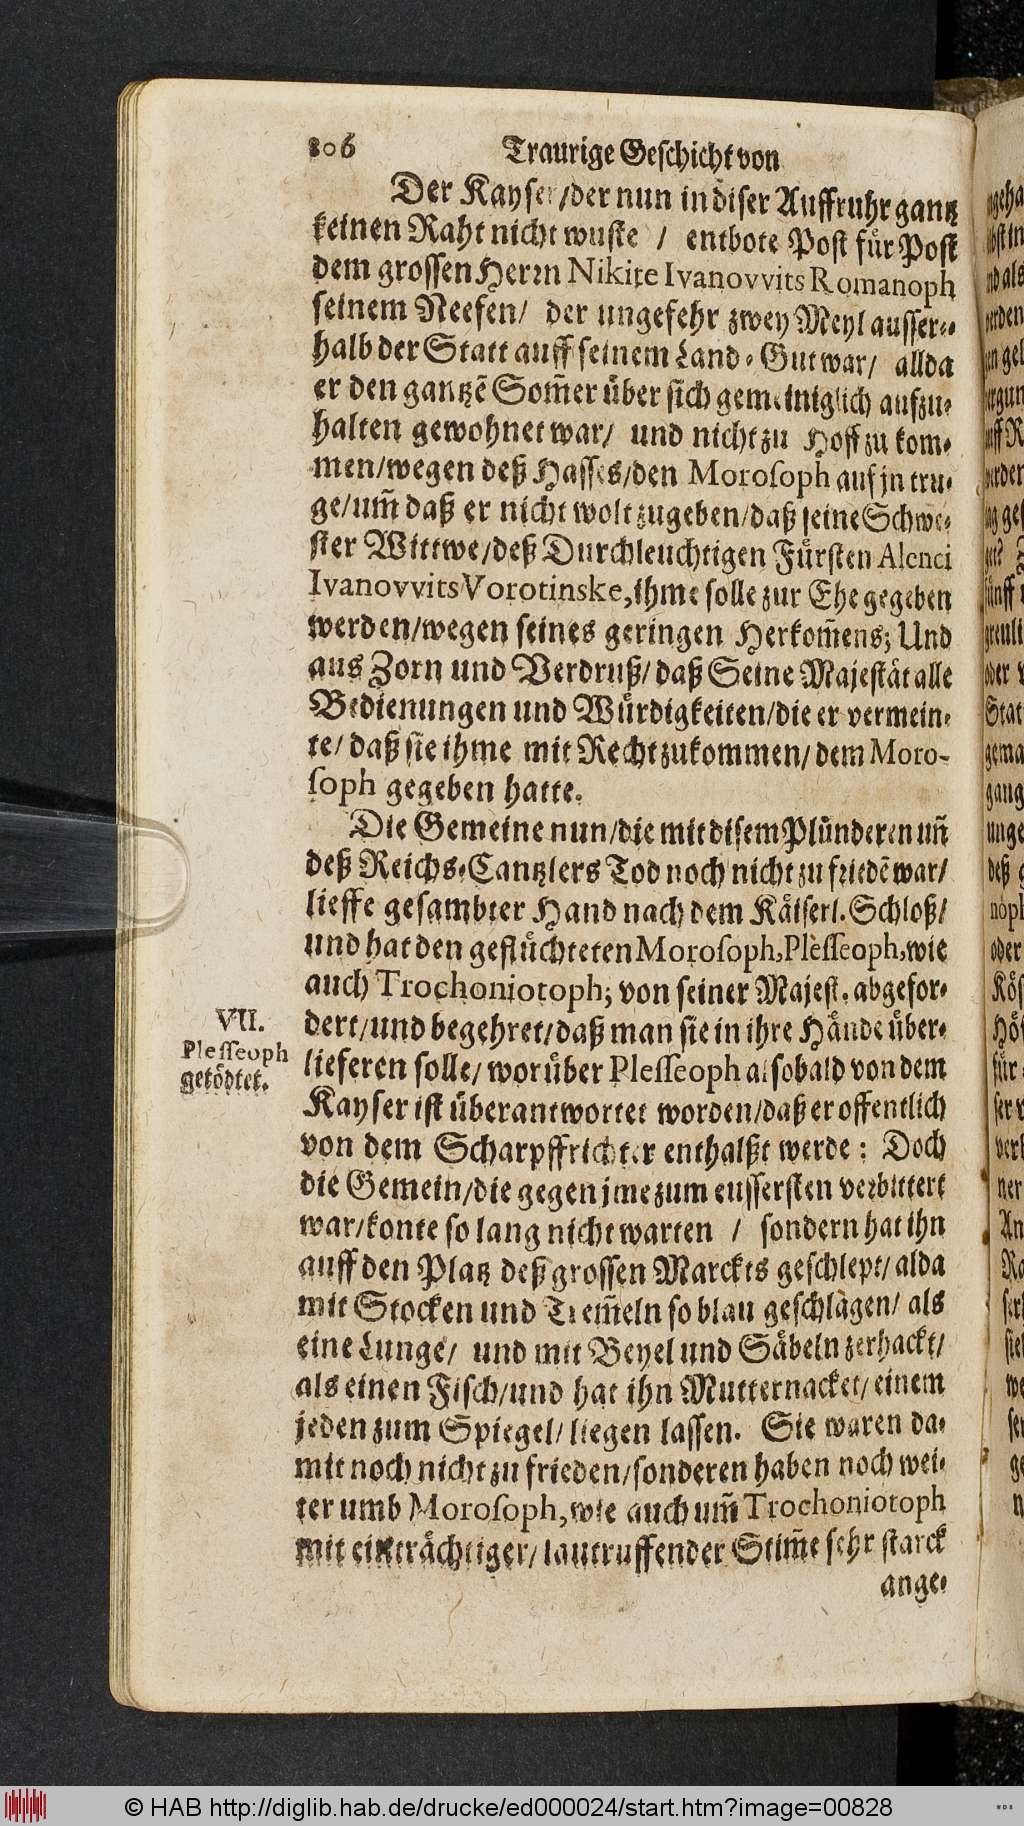 806 Traurige Geschicht von
Der Kayser/der nun in diser Auffruhr gantz
keinen Raht nicht wuste / entbote Post für Post
dem grossen Herrn Nikite Ivanovvits Romanoph
seinem Neefen/ der ungefehr zwey Meyl ausser-
halb der Statt auff seinem Land-Gut war/ allda
er den gantzē Som̃er über sich gemeiniglich aufzu-
halten gewohnet war/ und nicht zu Hoff zu kom-
men/wegen deß Hasses/den Morosoph auf jn tru-
ge/um̃ daß er nicht wolt zugeben/daß seine Schwe-
ster Wittwe/deß Durchleuchtigen Fürsten Alenci
Ivanovvits Vorotinske, ihme solle zur Ehe gegeben
werden/wegen seines geringen Herkom̃ens; Und
aus Zorn und Verdruß/daß Seine Majestät alle
Bedienungen und Würdigkeiten/die er vermein-
te/ daß sie ihme mit Recht zukommen/ dem Moro-
soph gegeben hatte.
Die Gemeine nun/die mit disem Plünderen uñ
deß Reichs-Cantzlers Tod noch nicht zu friedē war/
lieffe gesambter Hand nach dem Käiserl. Schloß/
und hat den geflüchteten Morosoph, Plesseoph, wie
auch Trochoniotoph; von seiner Majest. abgefor-
dert/und begehret/daß man sie in ihre Hände über-
lieferen solle/ worüber Plesseoph alsobald von dem
Kayser ist überantwortet worden/daß er offentlich
von dem Scharpffrichter enthalßt werde: Doch
die Gemein/die gegen jme zum eussersten verbittert
war/konte so lang nicht warten / sondern hat ihn
auff den Platz deß grossen Marckts geschlept/ alda
mit Stocken und Trem̃eln so blau geschlagen/ als
eine Lunge/ und mit Beyel und Säbeln zerhackt/
als einen Fisch/und hat ihn Mutternacket/einem
jeden zum Spiegel/ liegen lassen. Sie waren da-
mit noch nicht zu frieden/sonderen haben noch wei-
ter umb Morosoph, wie auch um̃ Trochoniotoph
mit einträchtiger/lautruffender Stim̃e sehr starck
ange-
VII.
Plesseoph
getödtet.
© HAB http://diglib.hab.de/drucke/ed000024/start.htm?image=00828